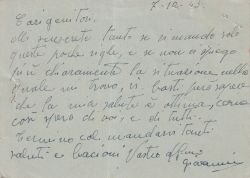 7-12-43.
Cari genitori,
Mi scuserete tanto se vi mando solo
queste poche righe, e se non vi spiego
più chiaramente la situazione nella
quale mi trovo, vi basti però sapere
che la mia salute è ottima, come
così spero di voi, e di tutti.
Termino col mandarvi tanti
saluti e bacioni Vostro aff.mo
Giovanni